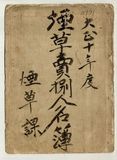 大正十年度
煙草賣捌人名簿
煙草課